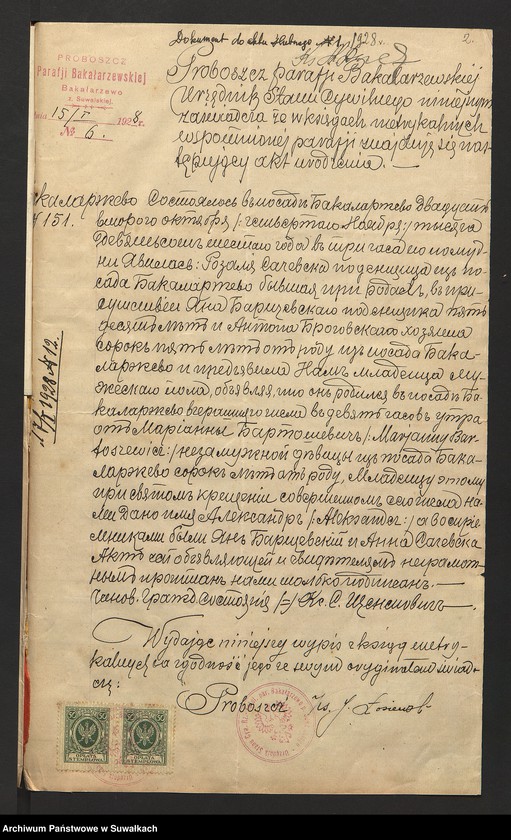 Dokument do aktu ślubnego № 1/1928 r.
2.
PROBOSZCZ
Parafji Bakałarzewskiej
Bakałarzewo
z. Suwalskiej.
dnia 15/I 1928 r.
№ 6.
Proboszcz parafji Bakałarzewskiej
Urzędnik Stanu Cywilnego niniejszym
zaświadcza że w księgach metrykalnych
wspomnionej parafji znajduje się nas-
tępujący akt urodzenia.
Бакаларжево
№ 151.
Состоялось въ посадѣ Бакаларжево Двадцать
второго октября /: четвертаго Ноября :/ тысяча
девятьсотъ шестаго года въ три часа по полуд-
ни Явилась: Розалія Сачевска поденщица изъ по-
сада Бакаларжево бывшая при родахъ, въ при-
сутствіи Яна Барщевскаго поденщика пять-
десятъ лѣтъ и Антона Броговскаго хозяина
сорокъ пять лѣтъ отъ роду изъ посада Бака-
ларжево и предъявила Намъ младенца му-
жескаго пола, объявляя, что онъ родился въ посадѣ Ба-
каларжево вчерашняго числа въ девять часовъ утра
отъ Маріанны Бартошевичъ /: Marjanny Bar-
toszewicz :/ незамужной дѣвицы изъ посада Бака-
ларжево сорокъ лѣтъ отъ роду, Младенцу этому
при святомъ крещеніи совершенномъ сего числа на-
ми Дано имя Александръ /: Aleksander :/ а воспрі-
емниками были Янъ Барщевскій и Анна Сачевска
Актъ сей объявляющей и свидѣтелямъ неграмот-
нымъ прочитанъ нами только подписанъ. —
Чинов. Гражд. Состоянія /-/ Кс. С.
17/I 1928 № 12.
Wydając niniejszy wypis z ksiąg metry-
kalnych za zgodność jego ze swym oryginałem świad-
czę:
Proboszcz Ks. J.
OPŁATA
STEMPLOWA
OPŁATA
STEMPLOWA
Archiwum Państwowe w Suwałkach